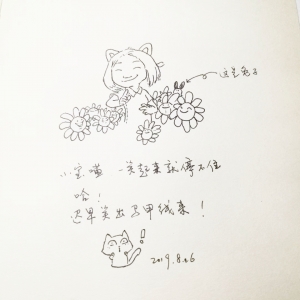 这是兔子
小宝喵 一笑起来就停不住
哈！
迟早笑出马甲线来！
2019.8.26